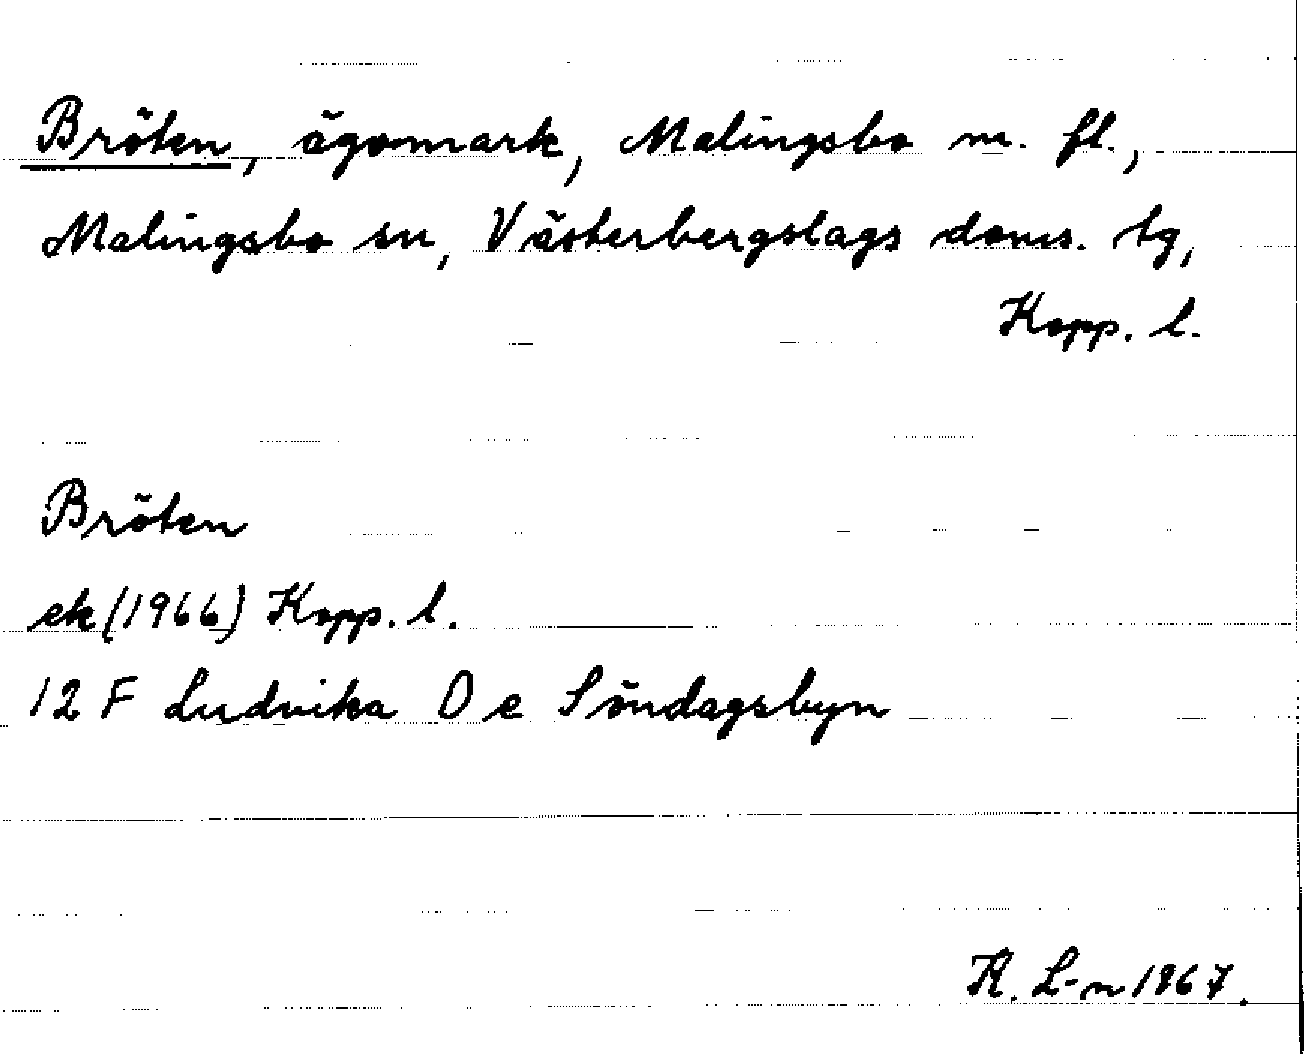 Bröten, ägomark, Malingsbo m. fl.,
Malingsbo sn, Västerbergslags doms. tg,
Kopp. l.
Bröten
ek (1966) Kopp. l.
12 F Ludvika O e Söndagsbyn
K. L-n 1967.